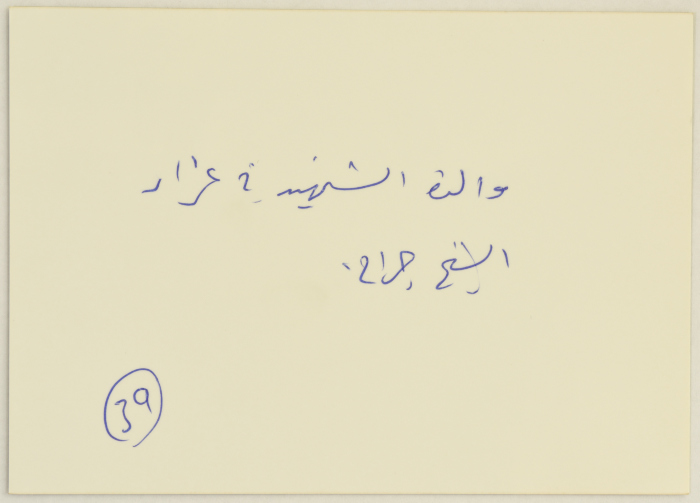 والدة الشهيدة عزار
الشيخ جراح.
39